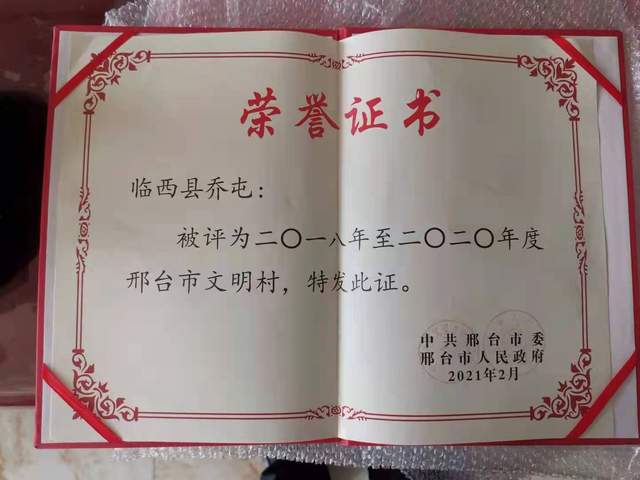 荣誉证书
临西县乔屯：
被评为二〇一八年至二〇二〇年度
邢台市文明村，特发此证。
中共邢台市委
邢台市人民政府
2021年2月